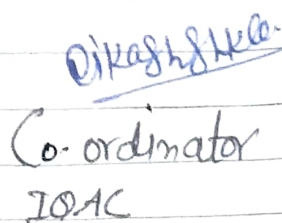 Co-ordinator
IQAC